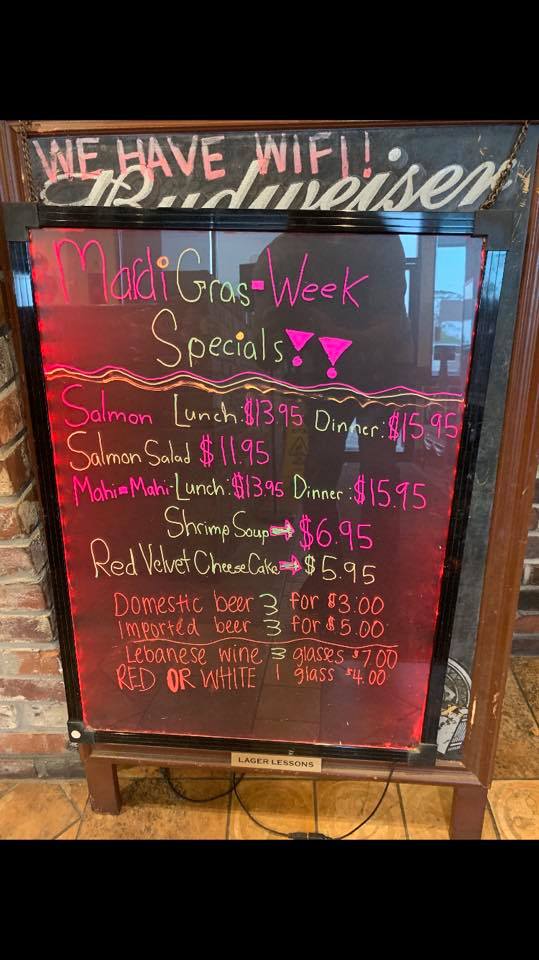 WE HAVE WIFI!
Budweiser
Mardi Gras-Week
Specials!!
Salmon Lunch:$13.95 Dinner:$15.95
Salmon Salad $11.95
Mahi-Mahi-Lunch:$13.95 Dinner:$15.95
Shrimp Soup⇒$6.95
Red Velvet Cheese Cake⇒$5.95
Domestic beer 3 for $3.00
Imported beer 3 for $5.00
Lebanese wine 3 glasses $7.00
RED OR WHITE 1 glass $4.00
LAGER LESSONS